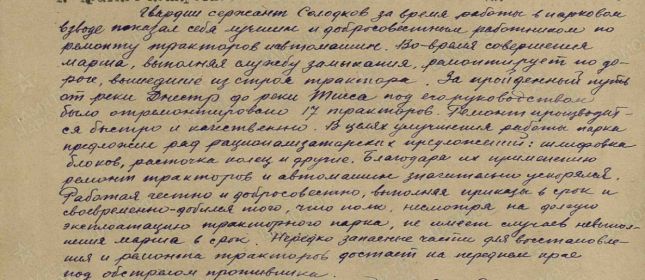 Гвардии сержант Солодков за время работы в парковом
взводе показал себя лучшим и добросовестным работником по
ремонту тракторов и автомашин. Во-время совершения
марша, выполняя службу замыкания, ремонтирует по до-
роге, вышедшие из строя трактора. За пройденный путь
от реки Днестр до реки Тисса под его руководством
было отремонтировано 17 тракторов. Ремонт производит-
ся быстро и качественно. В целях улучшения работы парка
предложил ряд рационализаторских предложений: шлифовка
блоков, расточка колец и другие. Благодаря их применению
ремонт тракторов и автомашин значительно ускорялся.
Работая честно и добросовестно, выполняя приказы в срок и
своевременно-добился того, что полк, несмотря на долгую
эксплоатацию тракторного парка, не имеет случаев невыпол-
нения марша в срок. Нередко запасные части для восстановле-
ния и ремонта тракторов достает на переднем крае
под обстрелом противника.